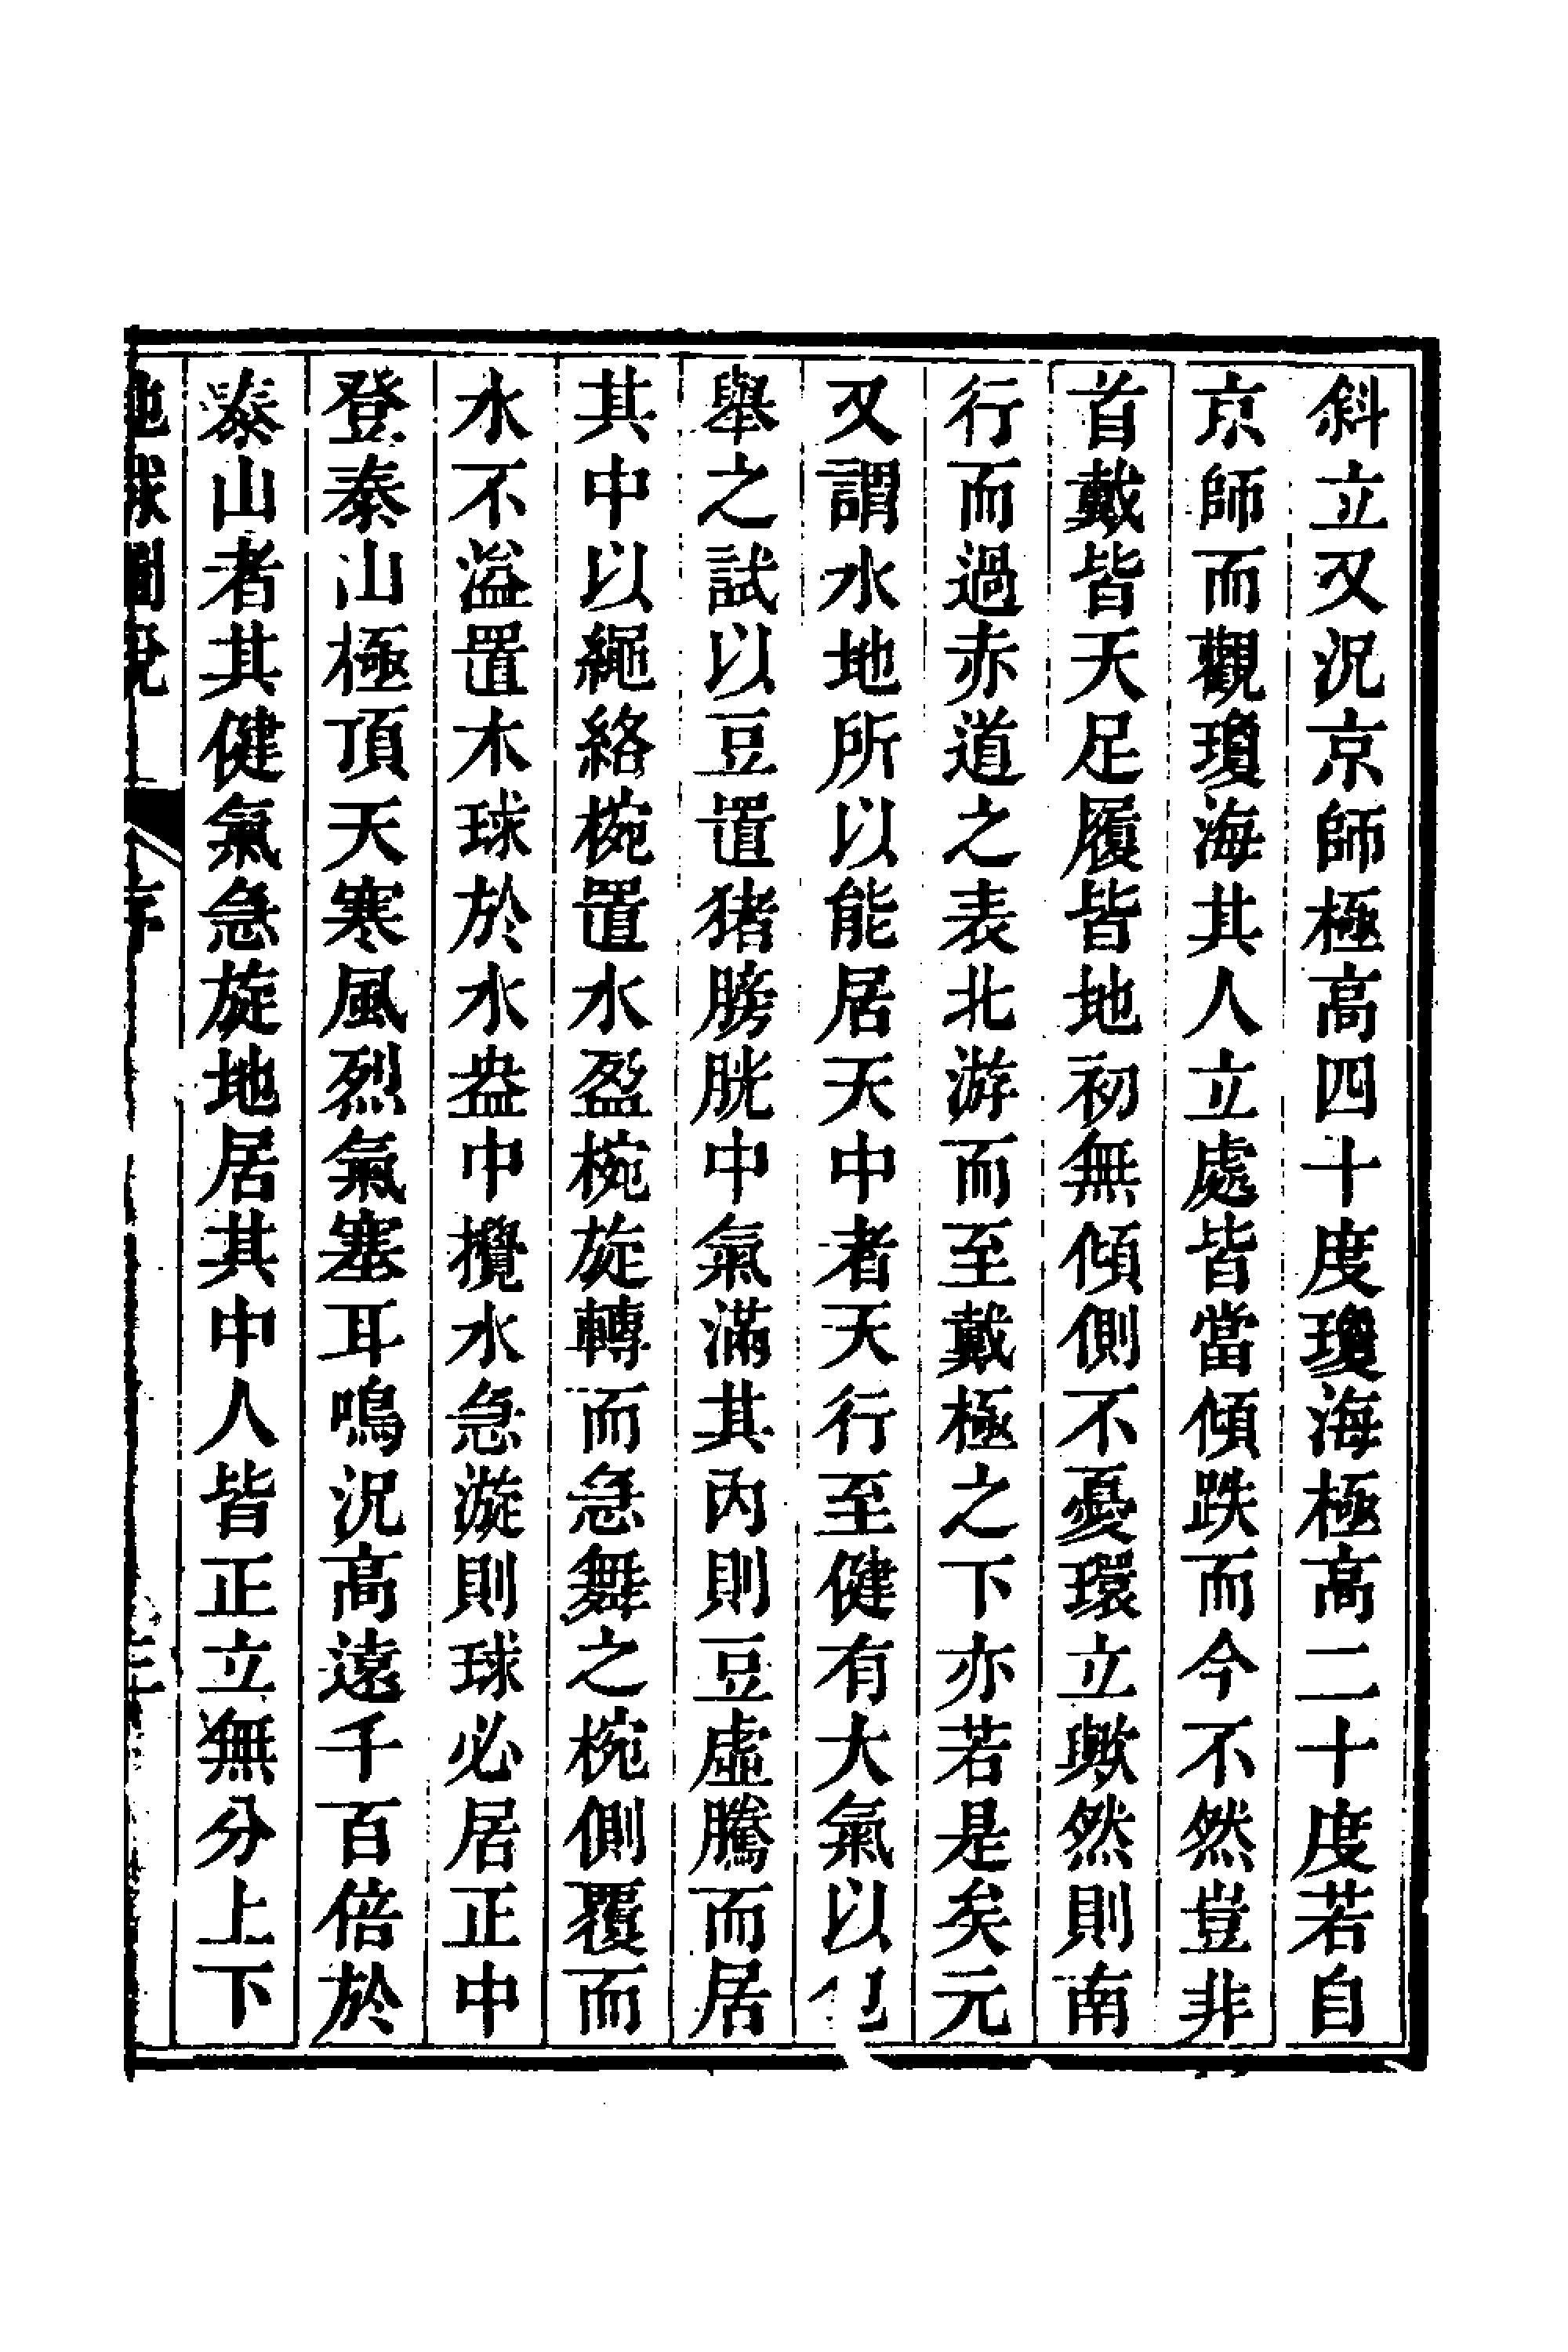 斜立又況京師極高四十度瓊海極高二十度若自
京師而觀瓊海其人立處皆當傾跌而今不然豈非
首戴皆天足履皆地初無傾側不憂環立歟然則南
行而過赤道之表北游而至戴極之下亦若是矣元
又謂水地所以能居天中者天行至健有大氣以
舉之試以豆置猪膀胱中氣滿其內則豆虛騰而居
其中以繩絡椀置水盈椀旋轉而急舞之椀側覆而
水不溢置木球於水盎中攪水急漩則球必居正中
登泰山極頂天寒風烈氣塞耳鳴況高遠千百倍於
泰山者其健氣急旋地居其中人皆正立無分上下
地球圖說
序
三